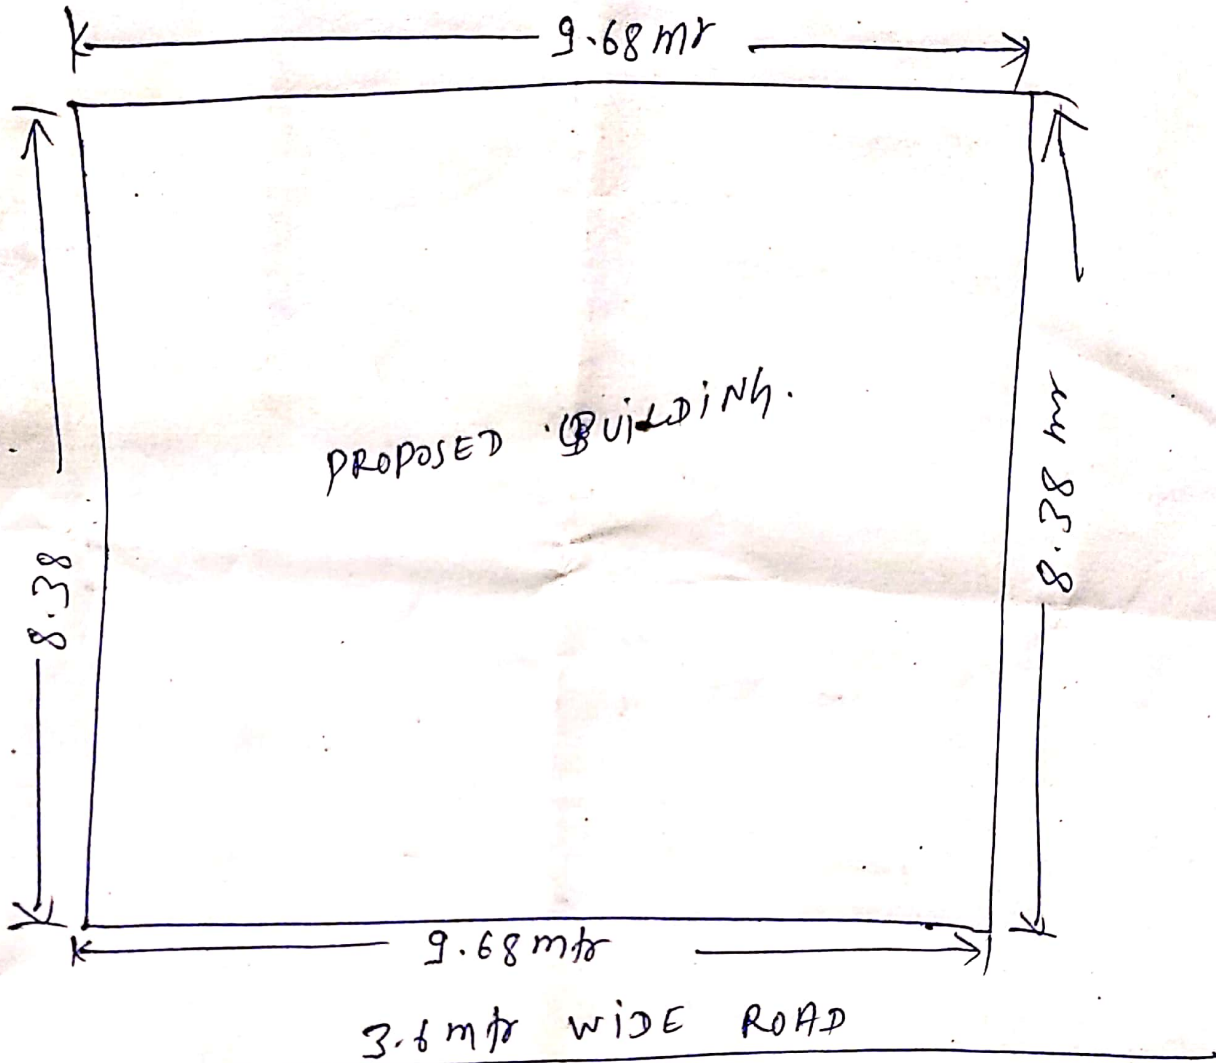 9.68 mr
PROPOSED BUILDING.
8.38
8.38 mr
9.68 mtr
3.6 mtr WIDE ROAD